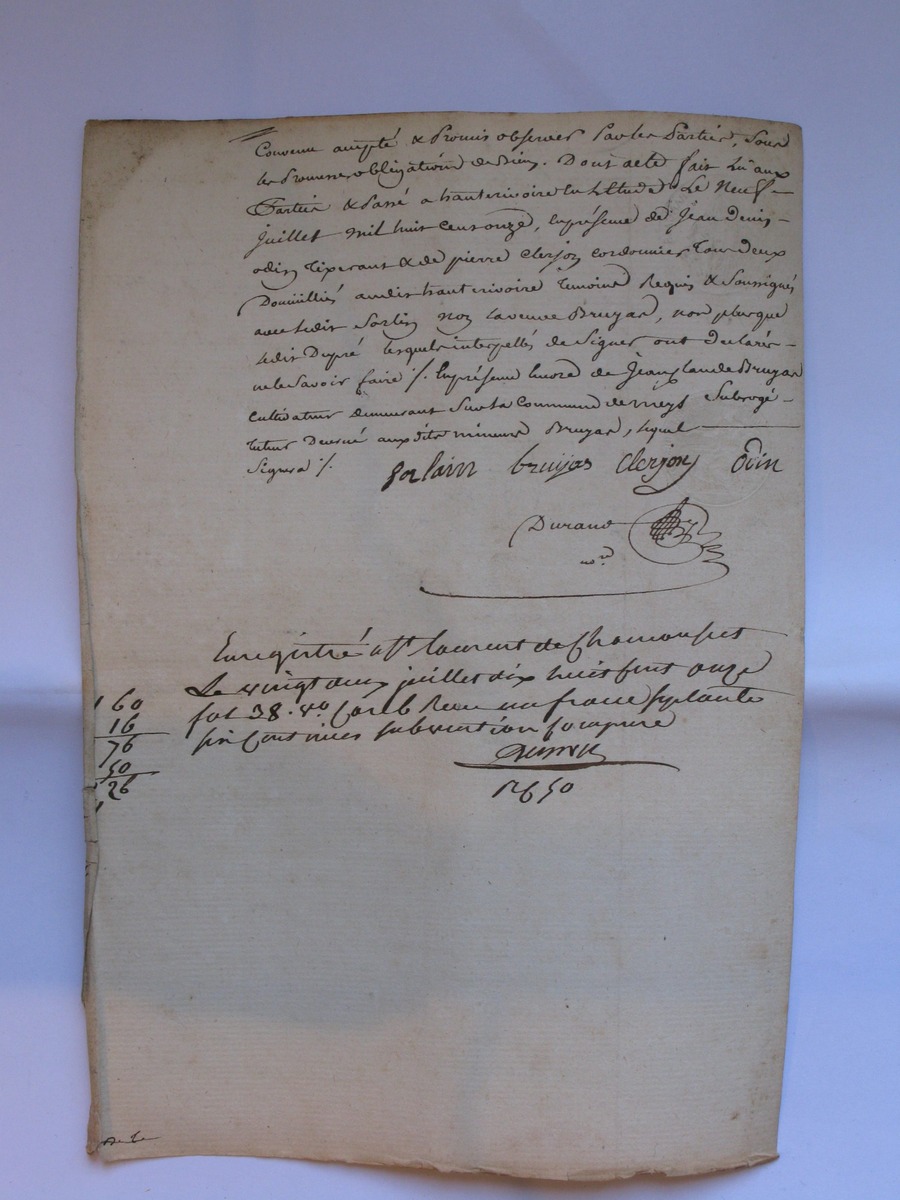 Convenu accepté & Promis observer Par les Parties, Sous
les Promesses obligations de Biens. Dont acte fait Lu aux
Parties & Passé a hauterivoire En Létude Le Neuf
juillet mil huit cent onze, En présence de Jean denis
odin Tixerant & de pierre Clerjon Cordonnier Tous deux
Domiciliés audit hauterivoire Témoins Requis & Soussignés
avec ledit Sorlin non la veuve Bruyas, non plus que
ledit Dupré lesquels interpellés de Signer ont declarés
ne le Savoir faire /. En présence Encore de Jean Claude Bruyas
Cultivateur demeurant Sur la Commune de meys Subrogé
tuteur Decerné aux dits mineurs Bruyas, lequel
Signera /.
Solain bruyas Clerjon Odin
Durand
nore
Enregistré a St laurent de Chamousset
Le vingt deux juillet dix huit cent onze
fol 38. vo Reçu un franc soixante
Six Centimes subvention Comprise
160
16
76
50
26